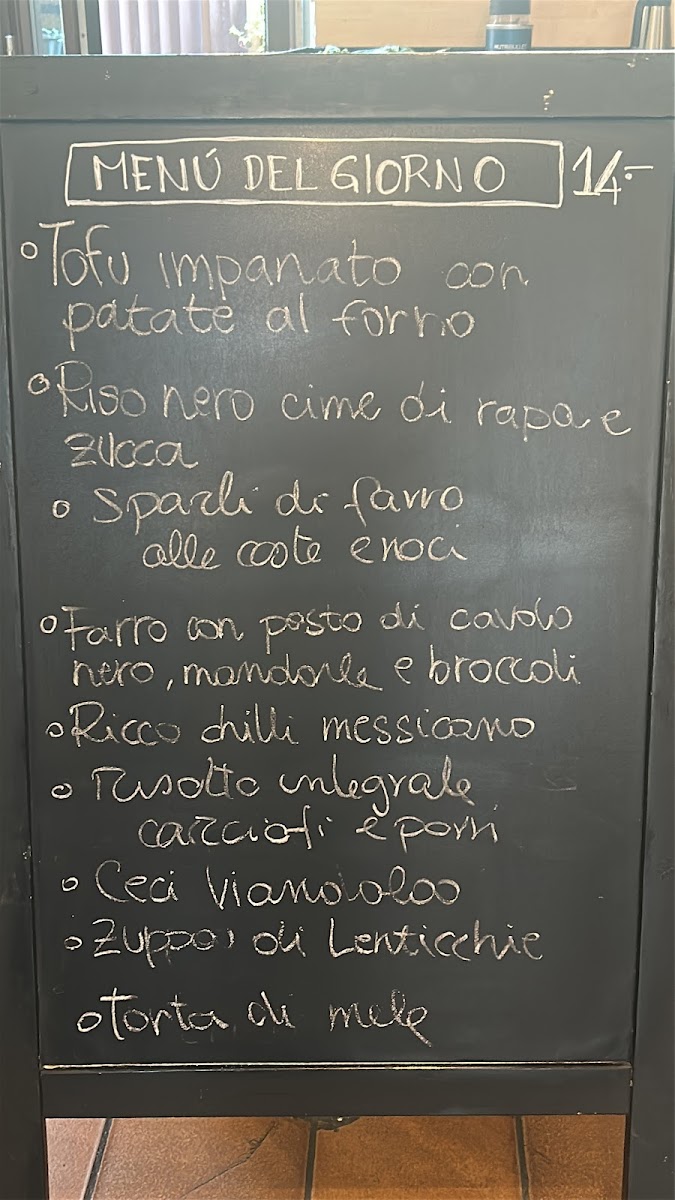 MENÚ DEL GIORNO 14.-
Tofu impanato con
patate al forno
Riso nero cime di rapa e
zucca
Spazli di farro
alle coste e noci
Farro con pesto di cavolo
nero, mandorle e broccoli
Ricco chilli messicano
Risotto integrale
carciofi e porri
Ceci
Zuppa di Lenticchie
Torta di mele